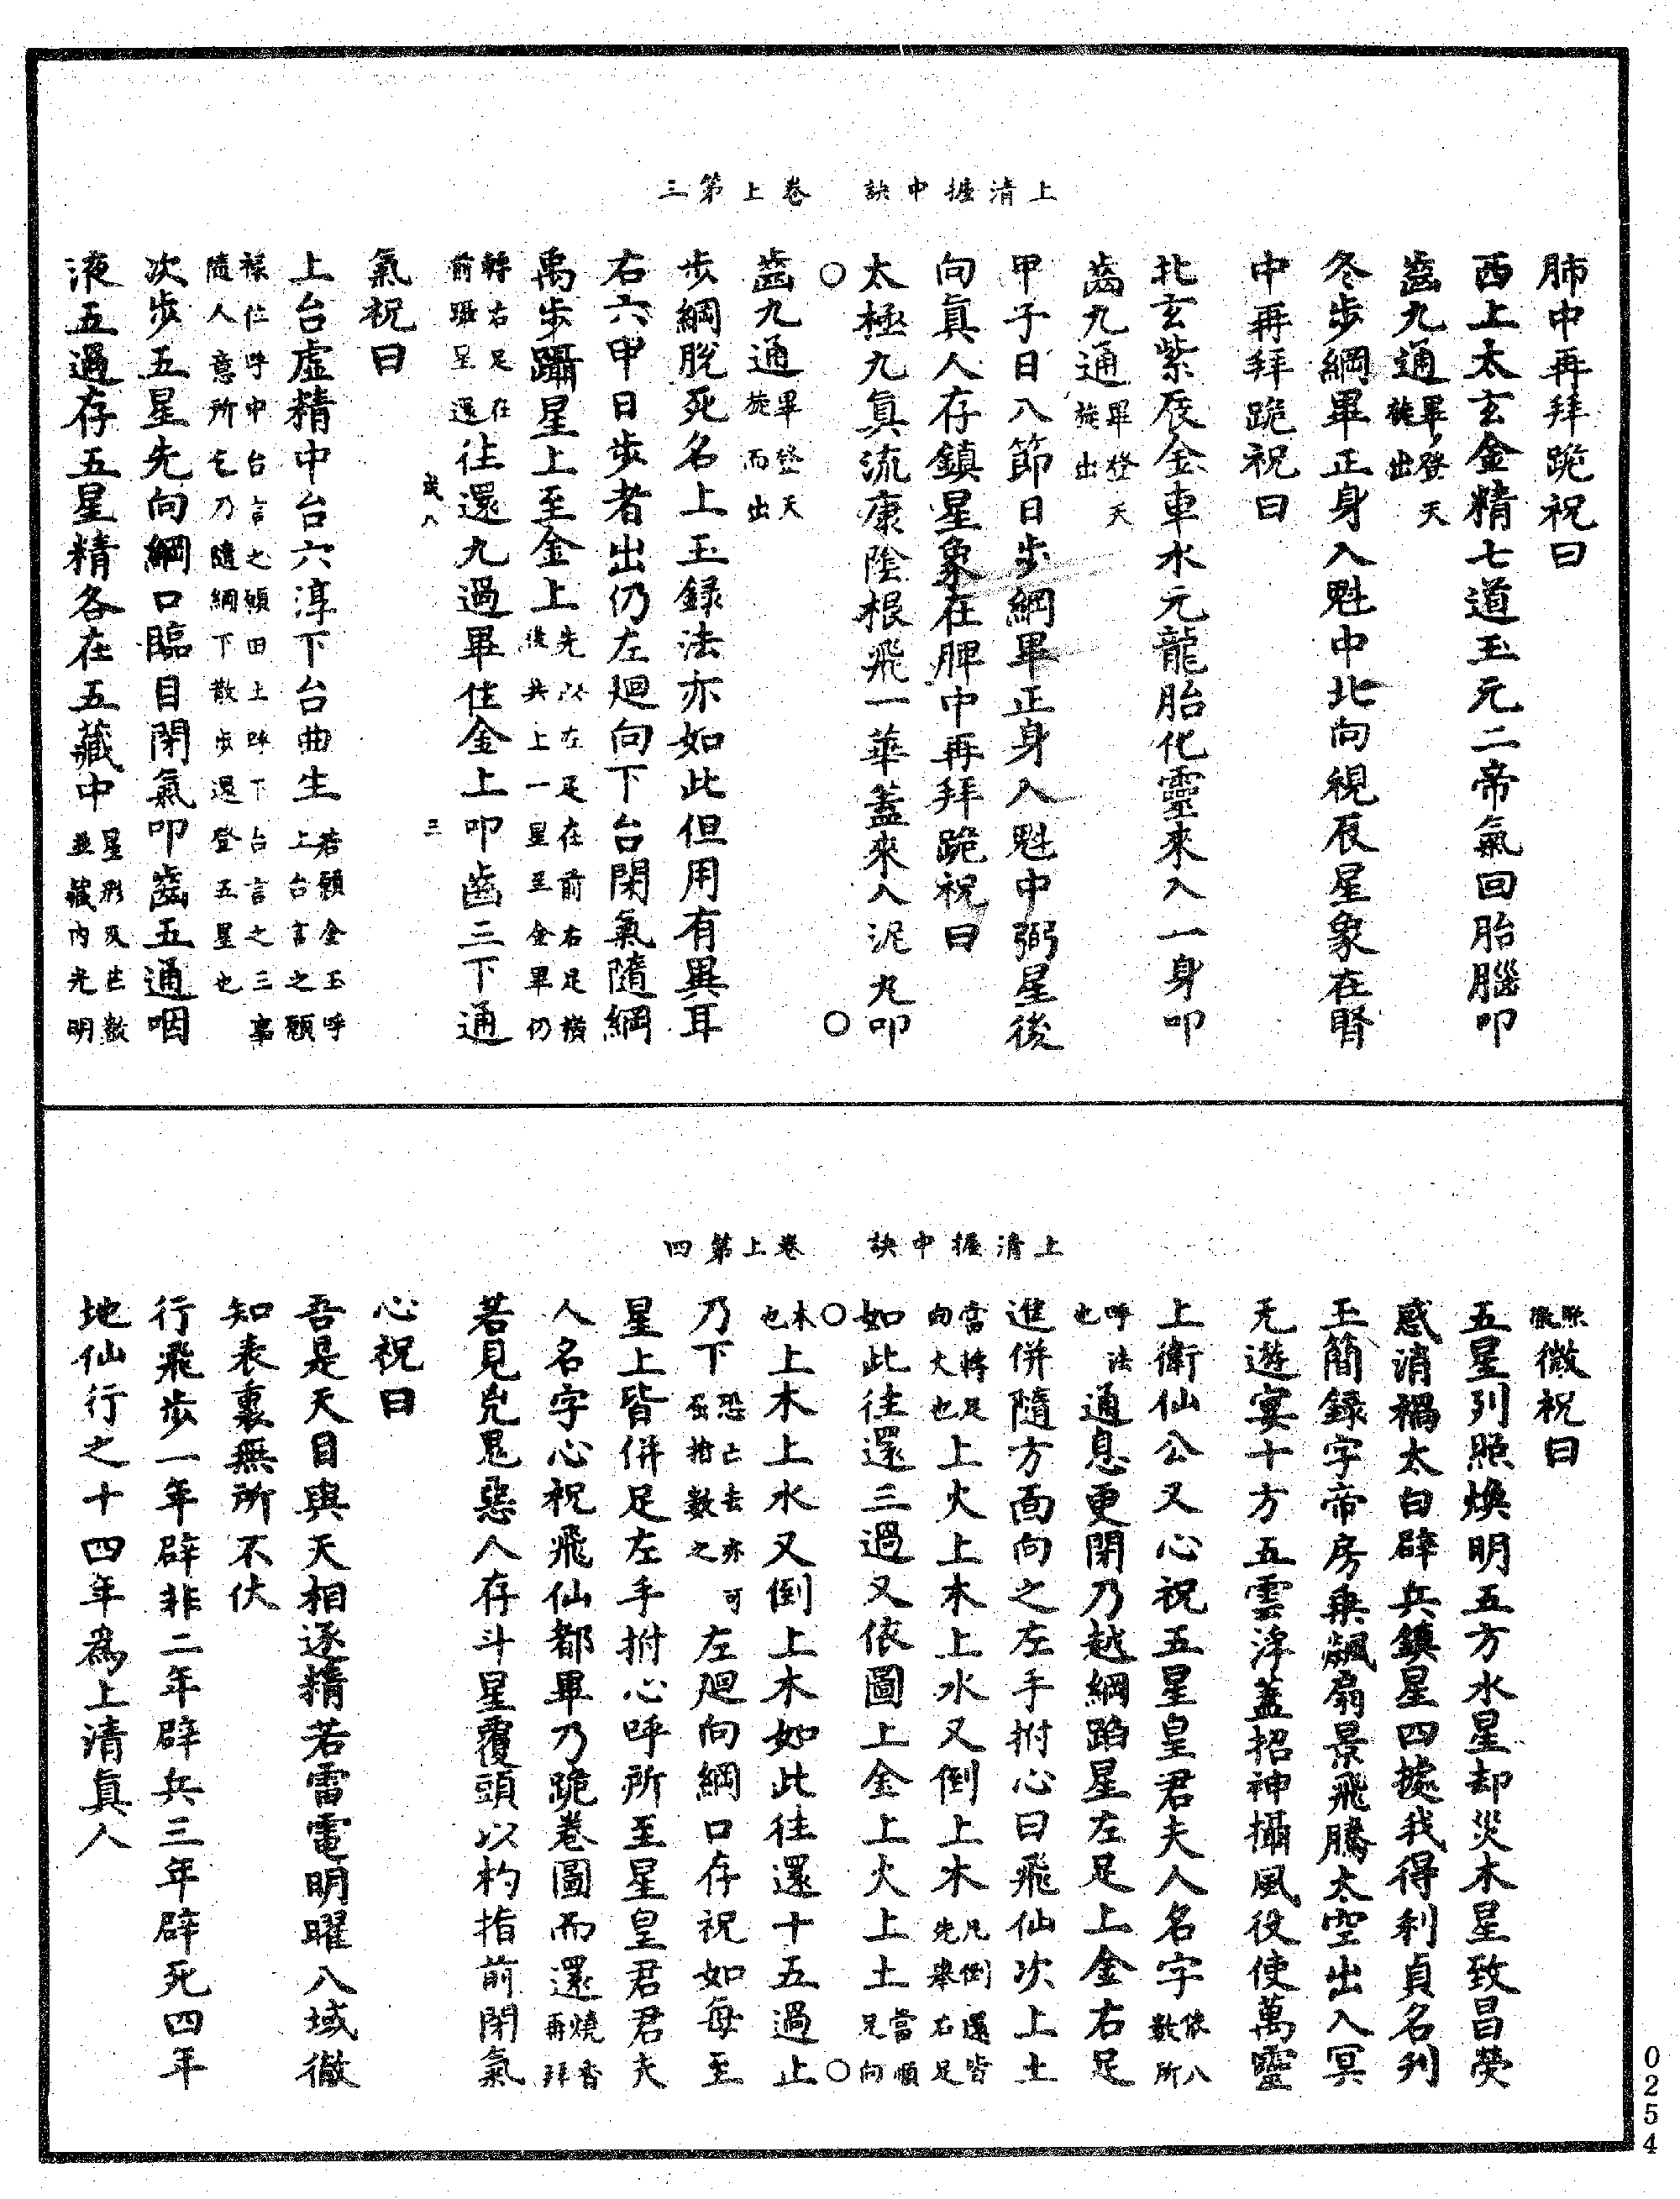 上清握中訣 卷上第三
肺中再拜跪祝曰
西上太玄金精七道玉元二帝氣回胎腦叩
齒九通畢登天旋出
冬步綱畢正身入魁中北向視辰星象在腎
中再拜跪祝曰
北玄紫辰金車水元龍胎化靈來入一身叩
齒九通畢登天旋出
甲子日八節日步綱畢正身入魁中弼星後
向真人存鎮星象在脾中再拜跪祝曰
太極九真流康陰根飛一華蓋來入泥丸叩
齒九通畢登天旋而出
步綱脫死名上玉録法亦如此但用有異耳
右六甲日步者出仍左廻向下台閉氣隨綱
禹步躡星上至金上先以左足在前右足橫後共上一星至金畢仍
轉右足在前躡星還往還九過畢住金上叩齒三下通
氣祝曰
上台虛精中台六淳下台曲生若願金玉呼上台言之願
祿位呼中台言之願田上呼下台言之三事隨人意所乞乃隨綱下散步還登五星也
次步五星先向綱口臨目閉氣叩齒五通咽
液五過存五星精各在五藏中星形及芒數並藏內光明
歲八 三
上清握中訣 卷上第四
微祝曰
五星列照煥明五方水星却災木星致昌熒
惑消禍太白辟兵鎮星四據我得利貞名列
玉簡録字帝房乗飇扇景飛騰太空出入冥
无遊宴十方五雲浮蓋招神攝風役使萬靈
上衛仙公又心祝五星皇君夫人名字依八數所
呼法也通息更閉乃越綱蹈星左足上金右足
進併隨方面向之左手拊心曰飛仙次上土
當轉足向火也上火上木上水又倒上木凡倒還皆先舉右足
如此往還三過又依圖上金上火上土當順足向
木也上木上水又倒上木如此往還十五過止
乃下恐亡去亦可屈指數之左廻向綱口存祝如每至
星上皆併足左手拊心呼所至星皇君君夫
人名字心祝飛仙都畢乃跪卷圖而還燒香再拜
若見兇鬼惡人存斗星覆頭以杓指前閉氣
心祝曰
吾是天目與天相逐精若雷電明曜八域徹
知表裏無所不伏
行飛步一年辟非二年辟兵三年辟死四年
地仙行之十四年爲上清真人
0254